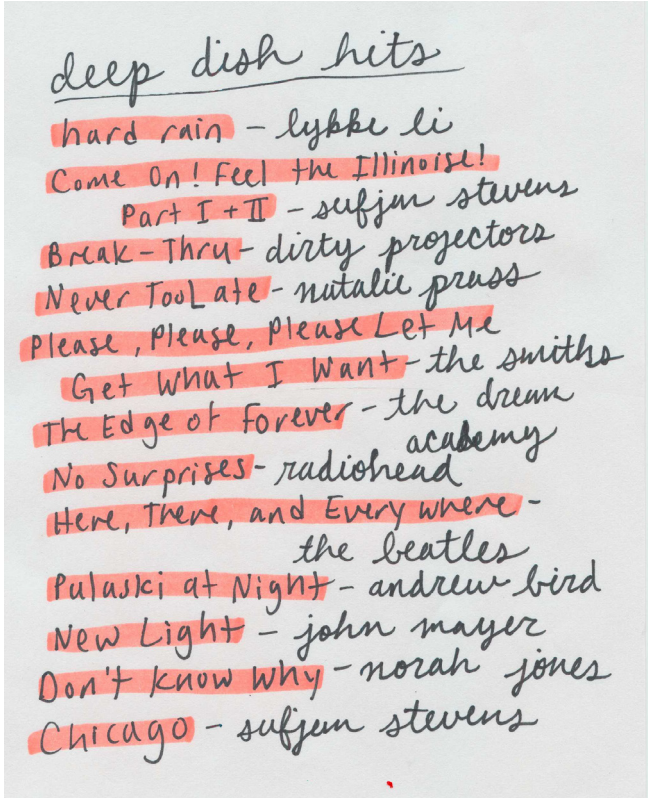 deep dish hits
hard rain - lykke li
Come On! Feel the Illinoise!
Part I + II - sufjan stevens
Break-Thru - dirty projectors
Never Too Late - natalie prass
Please, Please, Please Let Me
Get What I Want - the smiths
The Edge of Forever - the dream
academy
No Surprises - radiohead
Here, There, and Everywhere -
the beatles
Pulaski at Night - andrew bird
New Light - john mayer
Don't Know Why - norah jones
Chicago - sufjan stevens